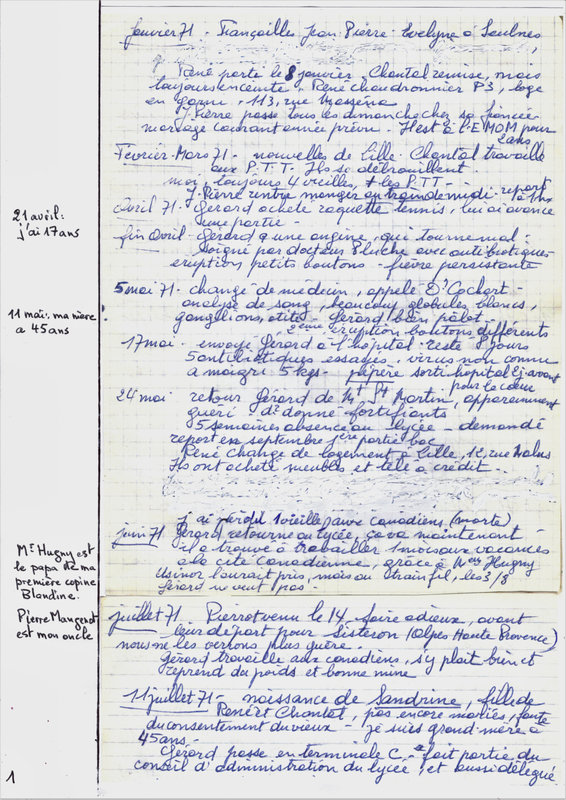 Janvier 71 - Fiançailles Jean-Pierre Evelyne à Saulnes,
René parti le 8 janvier. Chantal remise, mais
toujours enceinte - René chaudronnier P3, loge
en garni, 113, rue Masséna
J. Pierre passe tous les dimanches chez sa fiancée
mariage courant année prévu. Il est à l'EMOM pour
2 ans
Février-Mars 71 - nouvelles de Lille. Chantal travaille
aux P.T.T. Ils se débrouillent.
moi toujours 4 vieilles, + les PTT -
J. Pierre rentre manger au train de midi - repart
à 1h
21 avril :
j'ai 17 ans
Avril 71 : Gérard achète raquette tennis, lui ai avancé
une partie -
fin Avril Gérard a une angine qui tourne mal -
soigné par docteur Pluche avec antibiotiques
eruption, petits boutons - fièvre persistante
11 mai : ma mère
a 45 ans
5 mai 71 - change de medecin, appelé Dr Cochart -
analyse de sang, beaucoup globules blancs,
ganglions, otite - Gérard bien pâlot -
2ème eruption boutons différents
17 mai - envoyé Gérard à l'hopital - reste 8 jours
5 antibiotiques essayés - virus non connu
a maigri 5 kgs - pépère sorti hopital 2j. avant
pour le cœur
24 mai retour Gérard de Mt St Martin, apparemment
guéri Dr donné fortifiants
5 semaines absence au lycée - demandé
report en septembre 1ère partie bac
René change de logement à Lille, 12, rue
Ils ont acheté meubles et télé à crédit -
j'ai perdu 1 vieille aux canadiens (morte)
juin 71 Gérard retourne au lycée, ça va maintenant -
il a trouvé à travailler 1 mois aux vacances
à la cité Canadienne, grâce à Mr Hugny
Usinor l'aurait pris, mais au train fil, les 3/8
Gérard ne veut pas -
Mr Hugny est
le papa de ma
première copine
Blandine.
Pierre Mangenot
est mon oncle
juillet 71 Pierrot venu le 14, faire adieux, avant
leur départ pour Sisteron (Alpes Haute Provence)
nous ne les verrons plus guère.
Gérard travaille aux canadiens, s'y plait bien et
reprend du poids et bonne mine
11 juillet 71 - naissance de Sandrine, fille de
René et Chantal, pas encore mariés, faute
du consentement du vieux - je suis grand'mère à
45 ans -
Gérard passe en terminale C - fait partie du
conseil d'administration du lycée, et aussi délégué
1